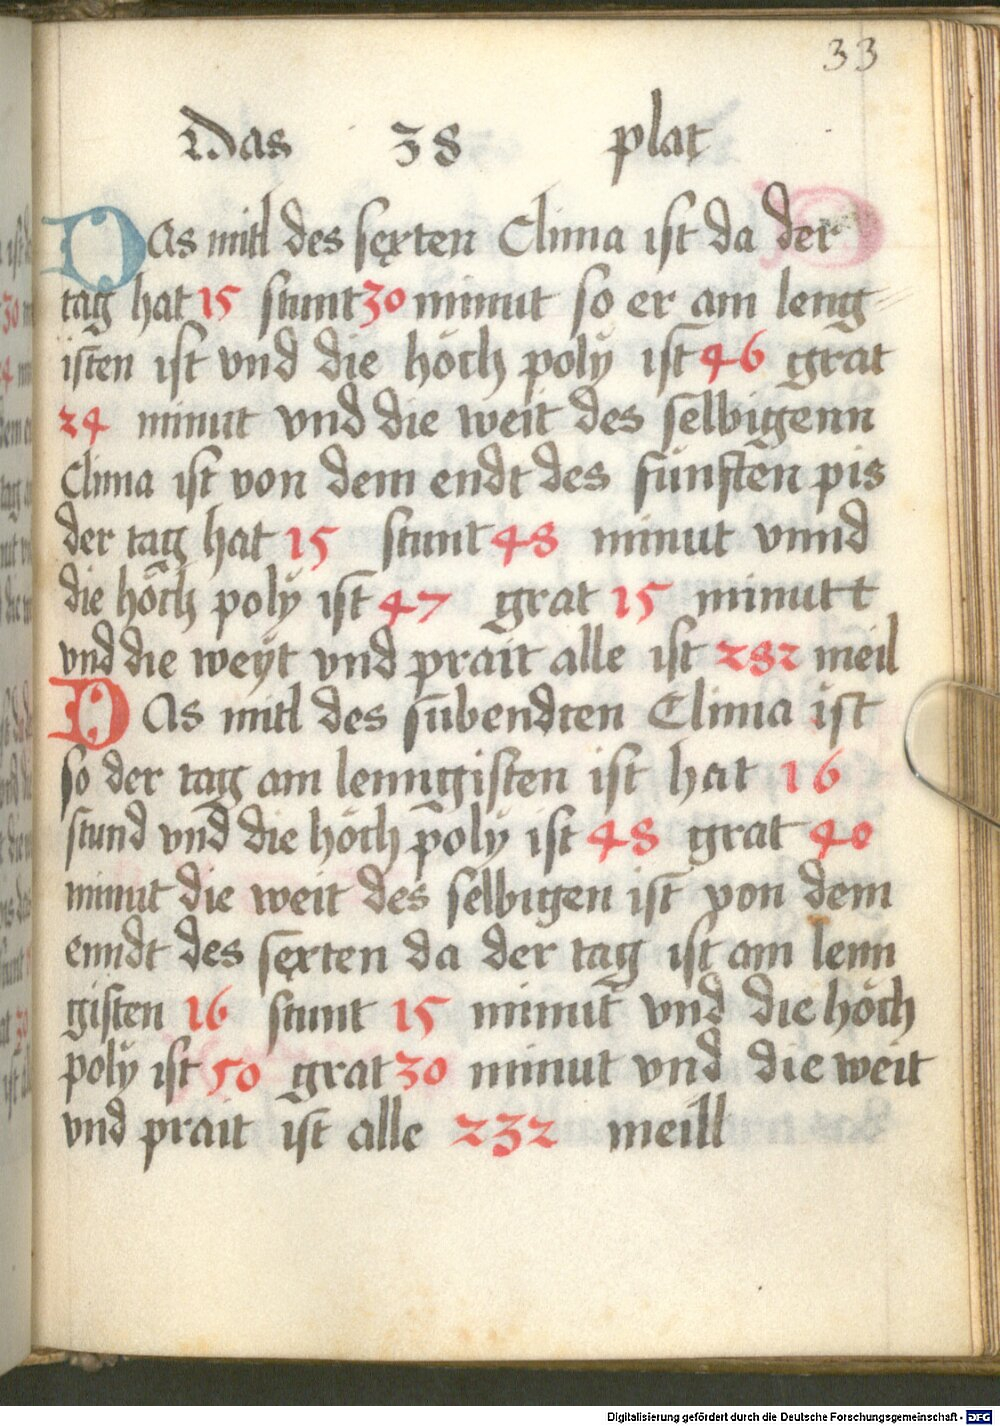 33
Das 38 plat
Das mitl des sexten Clima ist da der
tag hat 15 stunt 30 minut so er am leng=
isten ist vnd die höch poly ist 46 grat
24 minut vnd die weit des selbigenn
Clima ist von dem endt des fünften pis
der tag hat 15 stunt 48 minut vnnd
die höch poly ist 47 grat 15 minutt
vnd die weyt vnd prait alle ist 282 meil
Das mitl des sübendten Clima ist
so der tag am lenngisten ist hat 16
stund vnd die höch poly ist 48 grat 40
minut die weit des selbigen ist von dem
enndt des sexten da der tag ist am lenn
gisten 16 stunt 15 minut vnd die höch
poly ist 50 grat 30 minut vnd die weit
vnd prait ist alle 232 meill
Digitalisierung gefördert durch die Deutsche Forschungsgemeinschaft - DFG